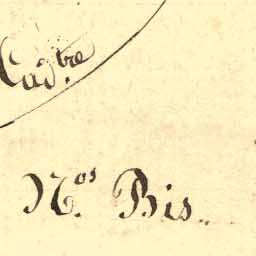 Cad.tre
N.os Bis..